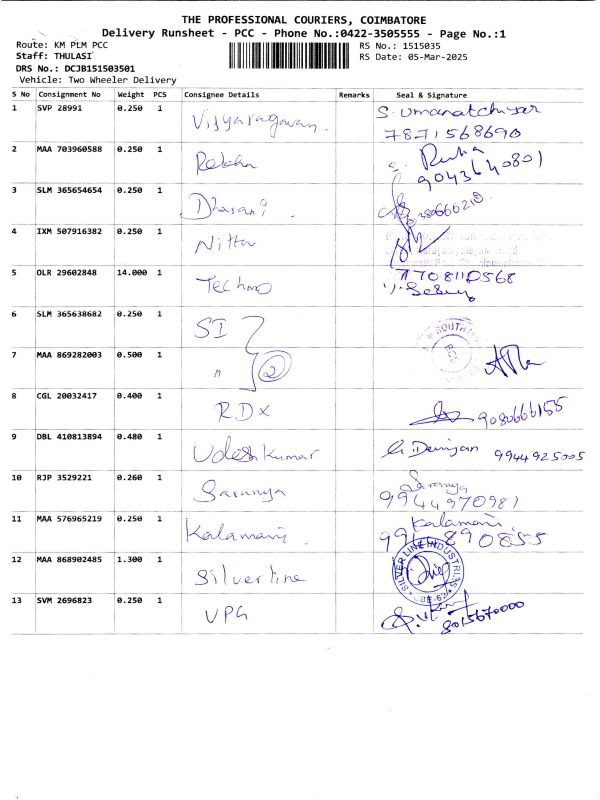 THE PROFESSIONAL COURIERS, COIMBATORE
Delivery Runsheet - PCC - Phone No.:0422-3505555 - Page No.:1
Route: KM PLM PCC
RS No.: 1515035
Staff: THULASI
RS Date: 05-Mar-2025
DRS No.: DCJB151503501
Vehicle: Two Wheeler Delivery
S No Consignment No Weight PCS Consignee Details Remarks Seal & Signature
1 SVP 28991 0.250 1 Vijyaragavan. S. Umanatchiyar
7871568690
2 MAA 703960588 0.250 1 Rekha
9043640801
3 SLM 365654654 0.250 1 Dharani
4 IXM 507916382 0.250 1 Nitta
5 OLR 29602848 14.000 1 Techno 7708110568
6 SLM 365638682 0.250 1 SI SOUTH
7 MAA 869282003 0.500 1 " 2
8 CGL 20032417 0.400 1 RDX 9080666155
9 DBL 410813894 0.480 1 Udesh Kumar 9944925005
10 RJP 3529221 0.260 1 Saranya Saranya
9944970981
11 MAA 576965219 0.250 1 Kalamani Kalamani
890855
12 MAA 868902485 1.300 1 Silverline SILVER LINE INDUSTRIES
13 SVM 2696823 0.250 1 VPG
8015670000